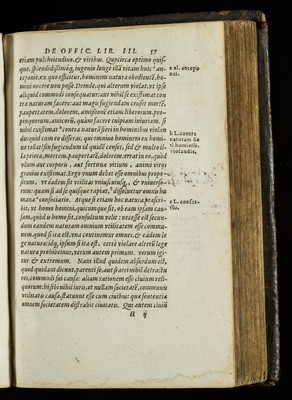 DE OFFIC. LIB. III. 57
etiam pulchritudine, & viribus. Quocirca optimo quis-
que, splendidissimoq, ingenio longe illā vitam huic a an-
teponit. ex quo efficitur, hominem naturæ obedientē, ho-
mini nocere non posse. Deinde, qui alterum violat, vt ipse
aliquid commodi consequatur: aut nihil se existimat con-
tra naturam facere: aut magis fugiendam censet mortē,
paupertatem, dolorem, amissionē etiam liberorum, pro-
pinquorum, amicorū, quàm facere cuipiam iniuriam. si
nihil existimat b contra naturā fieri in hominibus violan-
dis: quid cum eo disseras, qui omnino hominem ex homi-
ne tollat? sin fugiendum id quidē censet, sed & multo il-
la peiora, mortem, paupertatē, dolorem: errat in eo, quòd
vllum aut corporis, aut fortunæ vitium, animi vitijs
grauius existimat. Ergo vnum debet esse omnibus propo-
situm, vt eadem sit vtilitas vniuscuiusq, & vniuerso-
rum: quam si ad se quisque rapiat, dissoluetur omnis hu-
mana c consociatio. Atque si etiam hoc natura præscri-
bit, vt homo homini, quicunque sit, ob eam ipsam cau-
sam, quòd is homo sit, consultum velit: necesse est secun-
dum eandem naturam omnium vtilitatem esse commu-
nem. quod si ita est, vna continemur omnes, & eadem le-
ge naturæ: idq, ipsum si ita est, certè violare alterū lege
naturæ prohibemur, verum autem primum, verum igi-
tur & extremum. Nam illud quidem absurdum est,
quod quidam dicunt, parenti se, aut fratri nihil detractu
ros, commodi sui causa: aliam rationem esse ciuium reli-
quorum: hi sibi nihil iuris, at nullam societatē, communis
vtilitatis causa, statuunt esse cum ciuibus: quæ sententia
omnem societatem distrahit ciuitatis. Qui autem ciuiū
H ij
a al. antepo
nit.
b L. contra
naturam fie
ri hominib.
violandis.
c L. consoc-